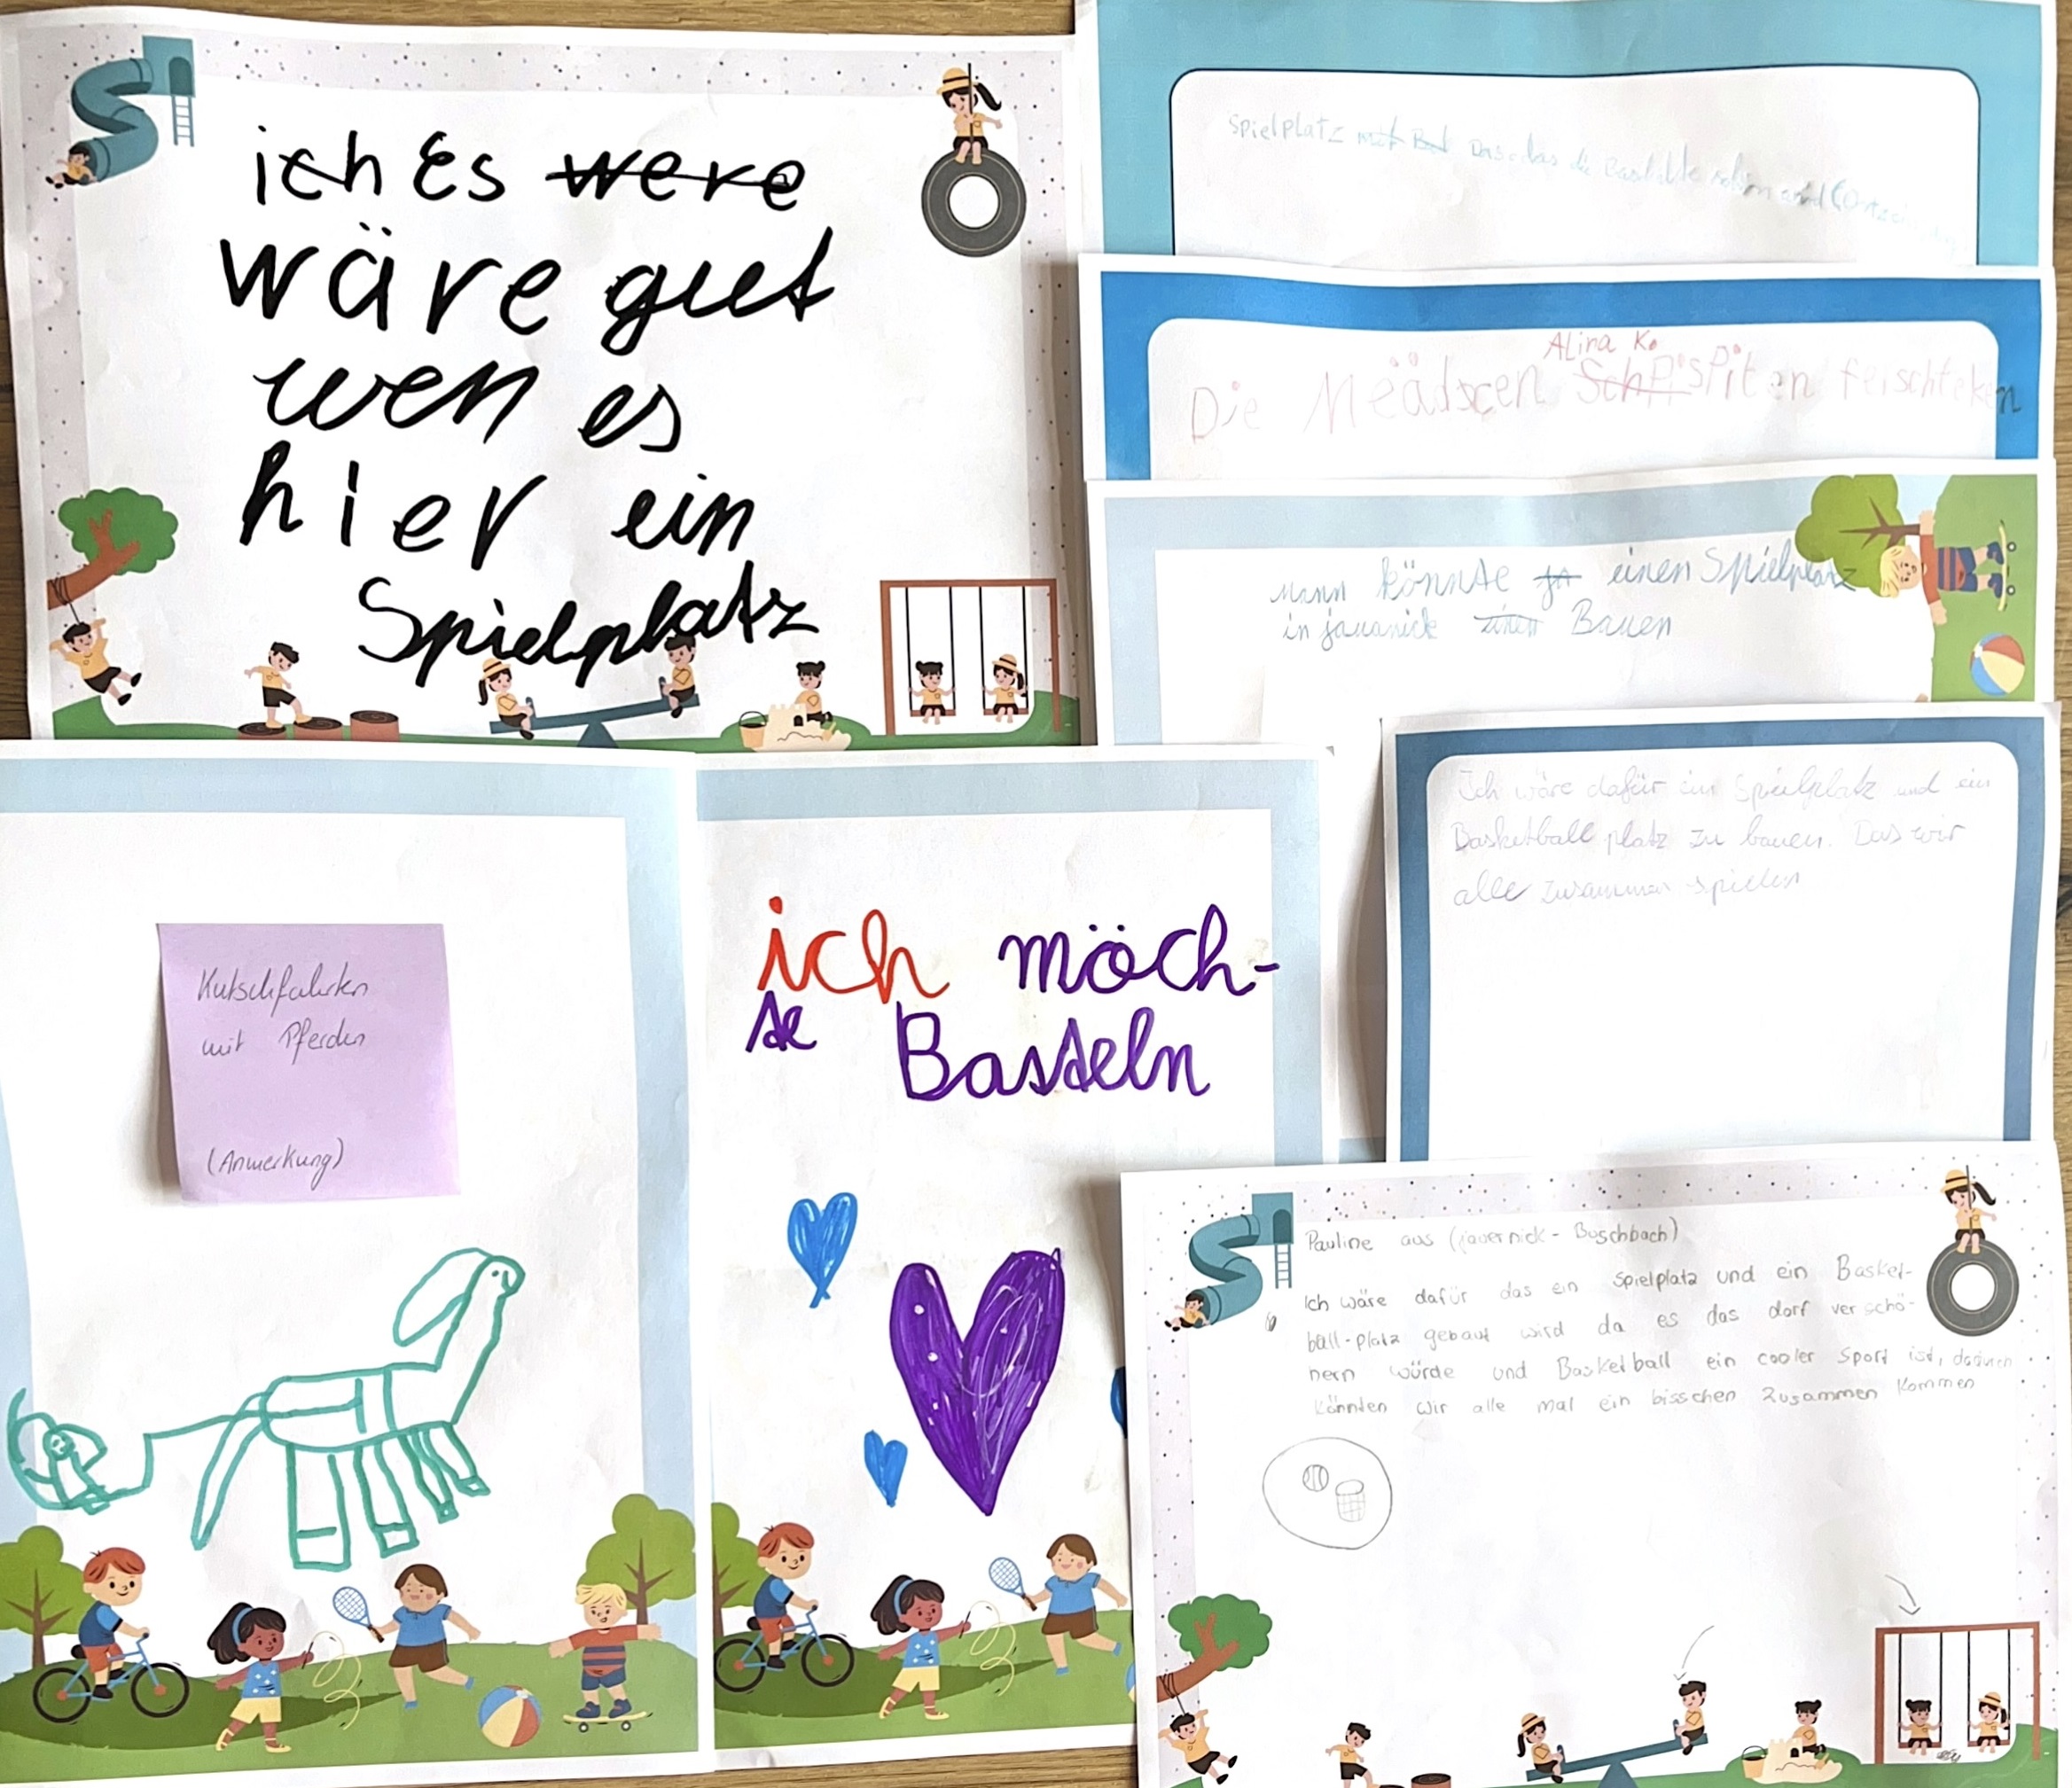 ich Es were
wäre gut
wen es
hier ein
Spielplatz
Spielplatz mit
Alina K.
Die Meädscen spiten ferschteken
Mann könnte ja einen Spielplatz
in jauanick einen Bauen
Ich wäre dafür ein Spielplatz und ein
Basketball platz zu bauen. Das wir
alle zusammen spielen
Kutschfahrten
mit Pferden
(Anmerkung)
ich möch-
te Basteln
Pauline aus (jauernick-Buschbach)
Ich wäre dafür das ein Spielplatz und ein Basket-
ball-platz gebaut wird da es das dorf verschö-
nern würde und Basketball ein cooler Sport ist, dadurch
könnten wir alle mal ein bisschen zusammen kommen